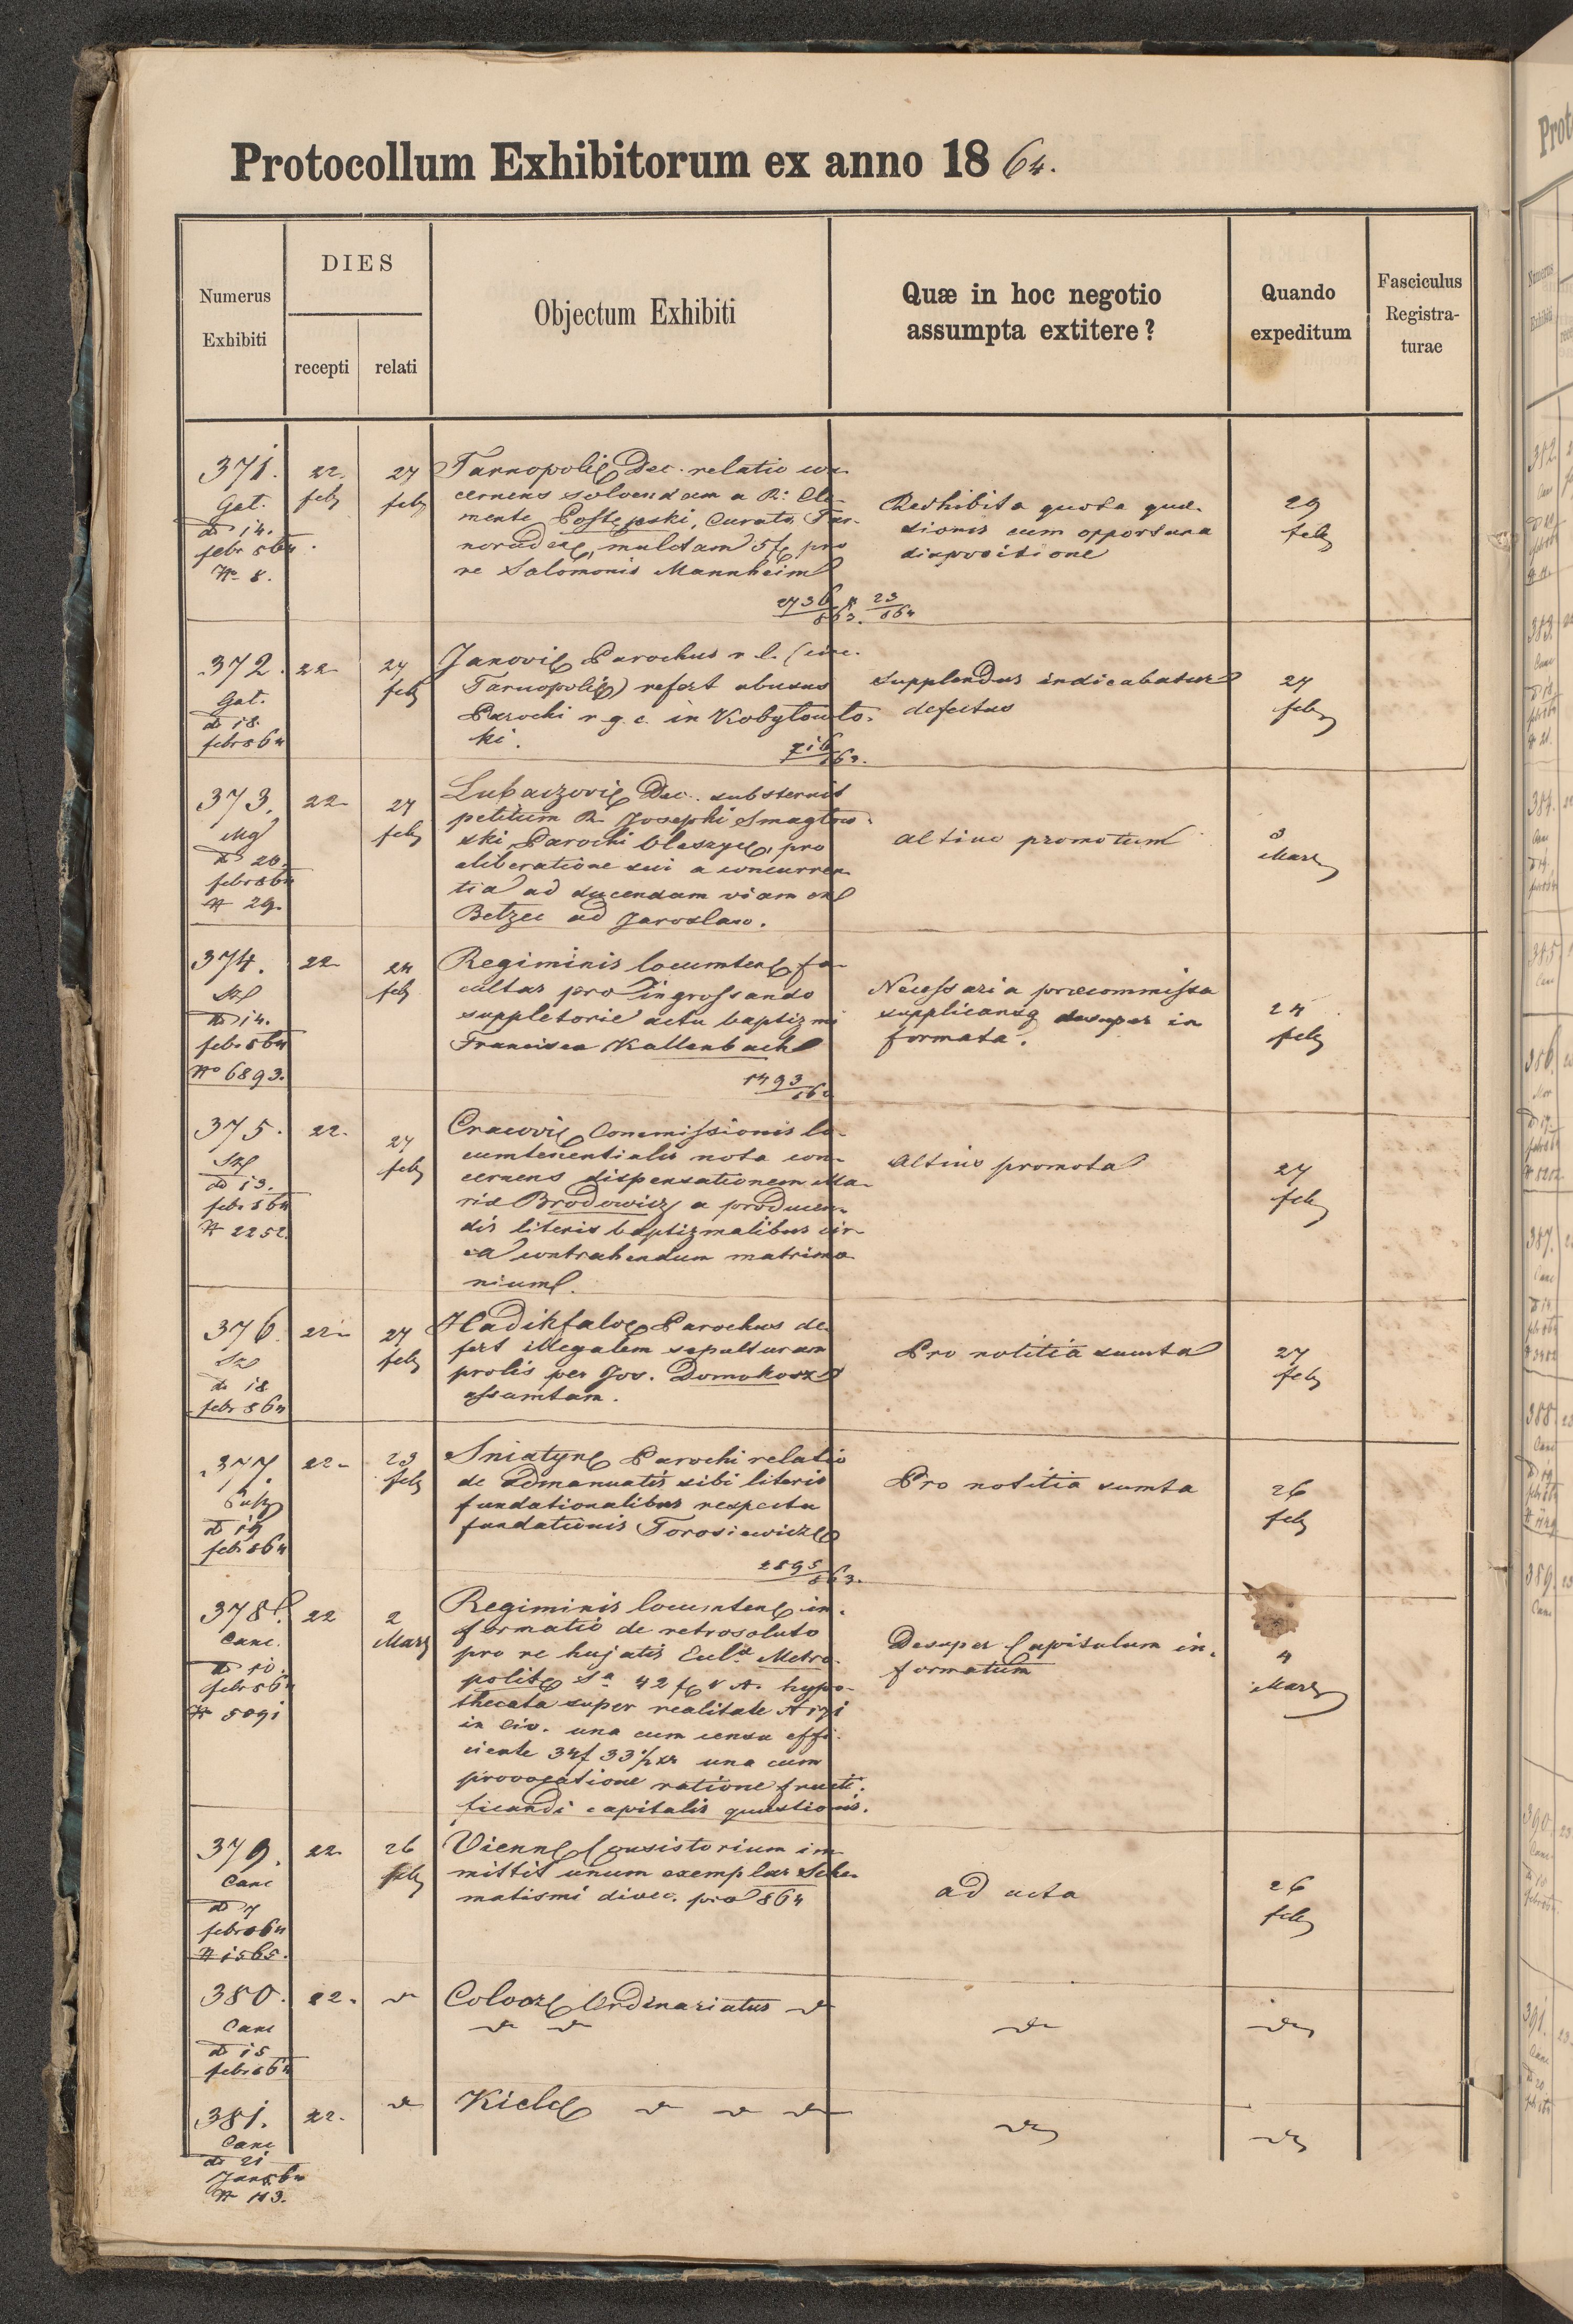 Protocollum Exhibitorum ex anno 1864.
Numerus
Exhibiti
DIES
recepti
relati
Objectum Exhibiti
Quæ in hoc negotio
assumpta extitere?
Quando
expeditum
Fasciculus
Registra-
turae
371.
Gat.
d 14.
febr 864.
N 8.
22.
feb
27
feb
Tarnopoli Dec. relatio con-
cernens solvendam a R: Cle-
mente, Curato Tar-
norudae, mulctam 5f, pro
re Salomonis Mannheim
2736/863. 23/864
Redhibita quota quae-
stionis cum opportuna
dispositione
29
feb
372.
Gat.
d 18
febr 864
22
27
feb
Janovi Parochus r. l. (circ.
Tarnopoli) refert abusus
Parochi r. g. c. in Kobyłowło-
ki.
Supplendus indicabatur
defectus
27
feb
373.
d 20.
febr 864
N 29.
22
27
feb
Lubaczovi Dec. substernit
petitum R. Josephi Smagłow-
ski Parochi Oleszyc, pro
eliberatione sui a concurren-
tia ad ducendam viam ex
Bełzec ad Jaroslaw.
altius promotum
3
Mar
374.
d 14.
febr 864
No 6893.
22
24
feb
Regiminis locumten fa-
cultas pro ingrossando
suppletorie actu baptizmi
Francisca Kallenbach
1493
Necessaria praecommissa
supplicans desuper in
formata.
24
feb
375.
d 13.
febr 864
N 2252.
22.
27
feb
Cracovi Commissionis lo-
cumtenentialis nota con-
cernens dispensationem Ma-
riae Brodowicz a producen-
dis literis baptizmalibus cir-
ca contrahendum matrimo-
nium.
altius promota
27
feb
376.
d 18
febr 864
22
27
feb
Hadikfalv Parochus de-
fert illegalem sepulturam
prolis per Jos. Domokosz
assumtam.
Pro notitia sumta
27
feb
377.
d 19
febr 864
22
23
feb
Sniatyn Parochi relatio
de admanuatis sibi literis
fundationalibus respectu
fundationis Torosiewicz
2895/863.
Pro notitia sumta
26
feb
378.
Canc.
d 10.
febr 864
N 5091
22
2
Mar
Regiminis locumten in-
formatio de retrosoluto
pro re hujatis Metro-
polit 42 f v. A. hypo-
thecata super realitate N 171
in civ. una cum censu effi-
ciente 34f 33½ xr una cum
provocatione ratione fructi-
ficandi capitalis quaestionis.
Desuper Capitulum in-
formatum
4
Mar
379.
Canc
d 7
febr 864
N 1565.
22
26
feb
Vienn Consistorium im-
mittit unum exemplar Sche-
matismi dioec. pro 864
ad acta
26
feb
380.
Canc
d 15
febr 864
22.
d
Colocz Ordinariatus d
d d
d
d
381.
Canc
d 21
Jan 864
N 113.
22.
d
Kielc d d d
d
d